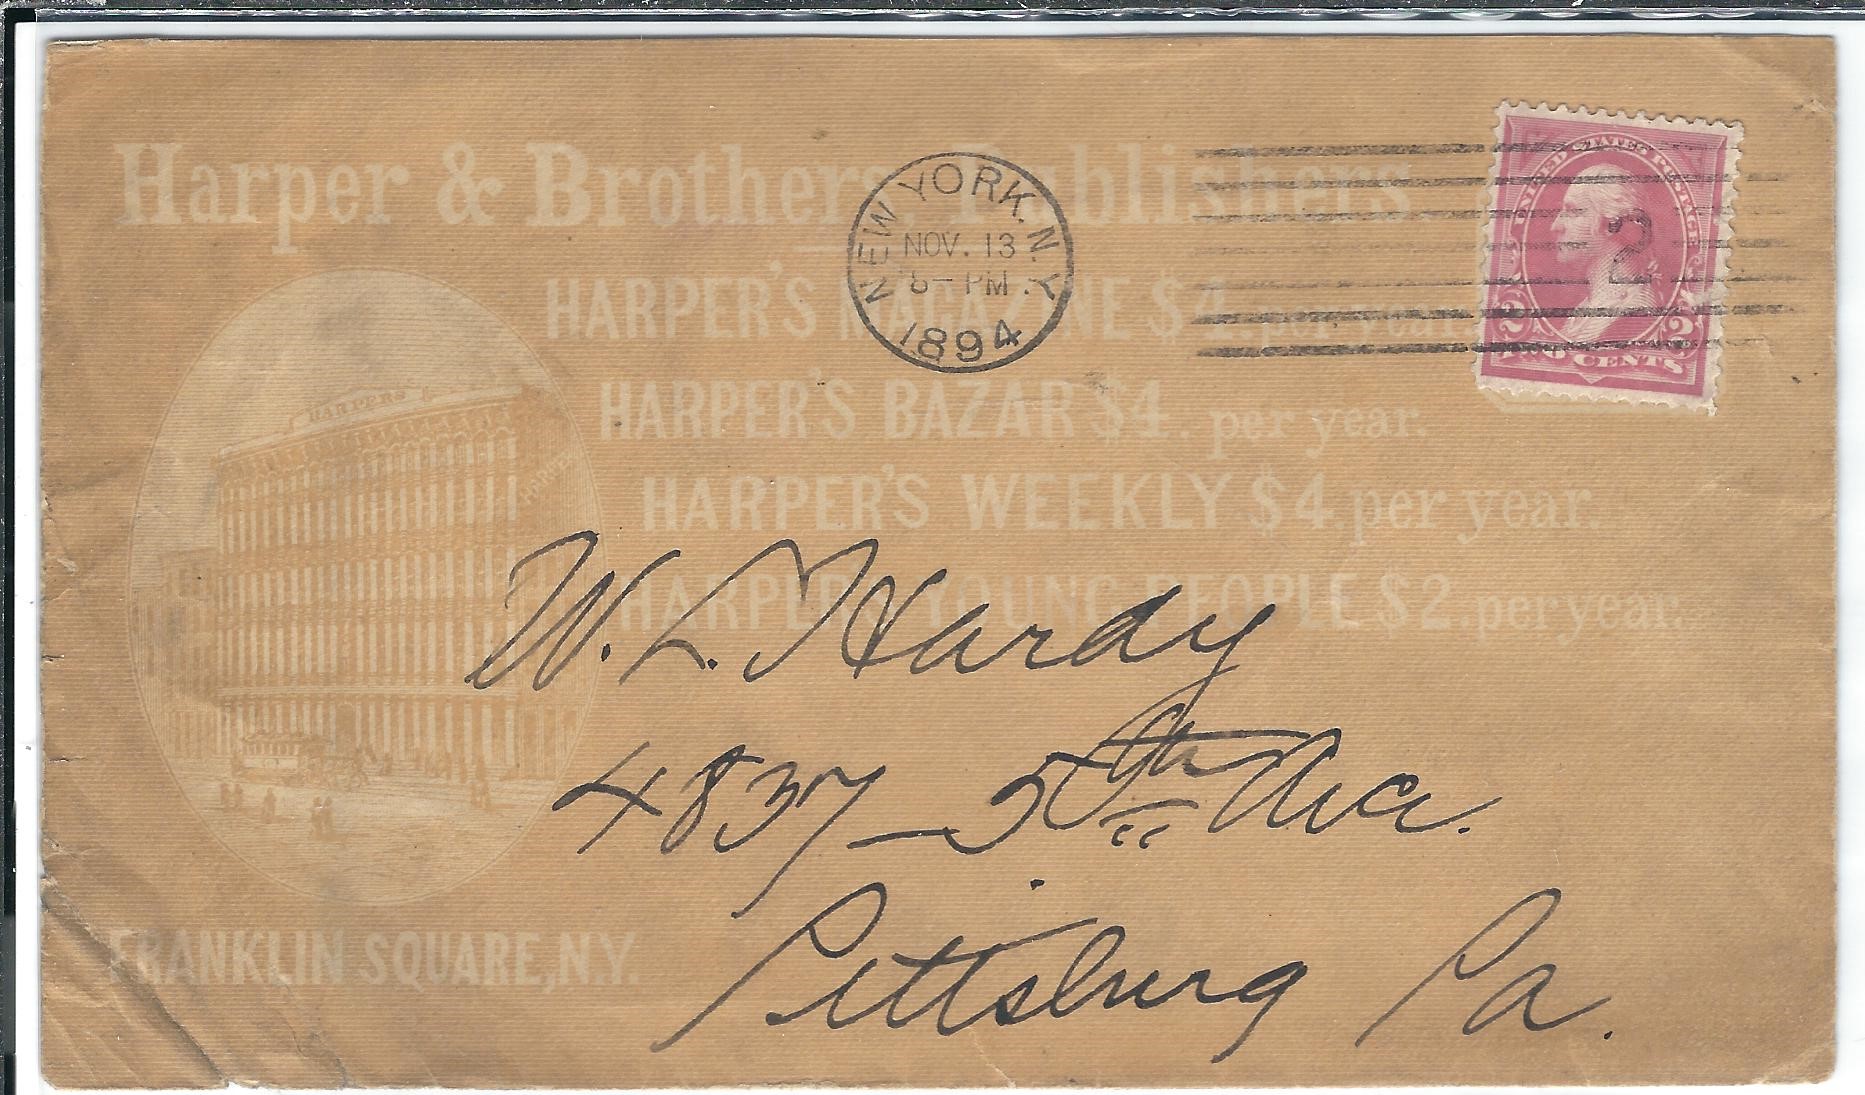 Harper & Brothers, Publishers
HARPER'S MAGAZINE $4 per year.
HARPER'S BAZAR $4. per year.
HARPER'S WEEKLY $4. per year.
HARPER'S YOUNG PEOPLE $2. per year.
HARPERS
HARPER
FRANKLIN SQUARE, N.Y.
NEW YORK. N.Y.
NOV. 13
PM
1894
2
UNITED STATES POSTAGE
2 2
TWO CENTS
W. L. Hardy
4837 - 5th Ave.
Pittsburg Pa.